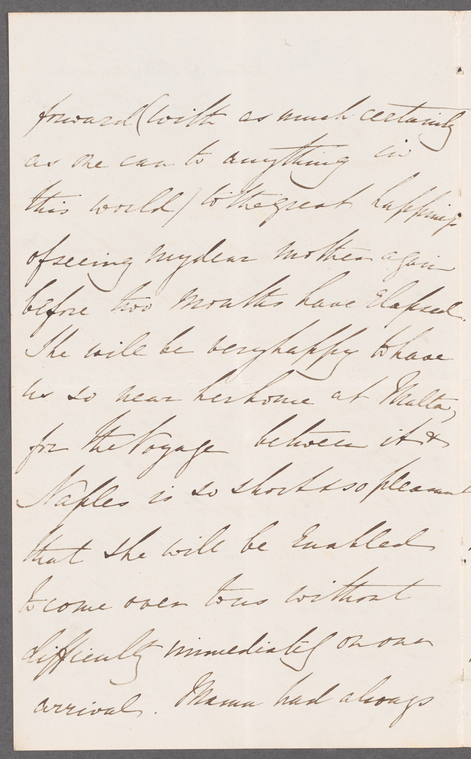 forward (with as much certainty
as one can to anything in
this world) to the great happiness
of seeing my dear mother again
before two months have elapsed.
She will be very happy to have
us so near her home at Malta,
for the Voyage between it &
Naples is so short & so pleasant
that she will be Enabled
to come over to us without
difficulty immediately on our
arrival. Mama had always